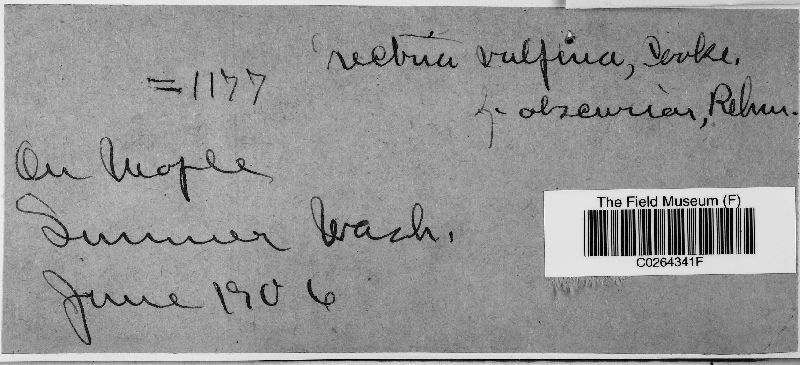 Nectria vulpina, Cooke.
=1177
f. obscurior, Rehm.
On Maple
Sumner Wash.
June 1906
The Field Museum (F)
C0264341F